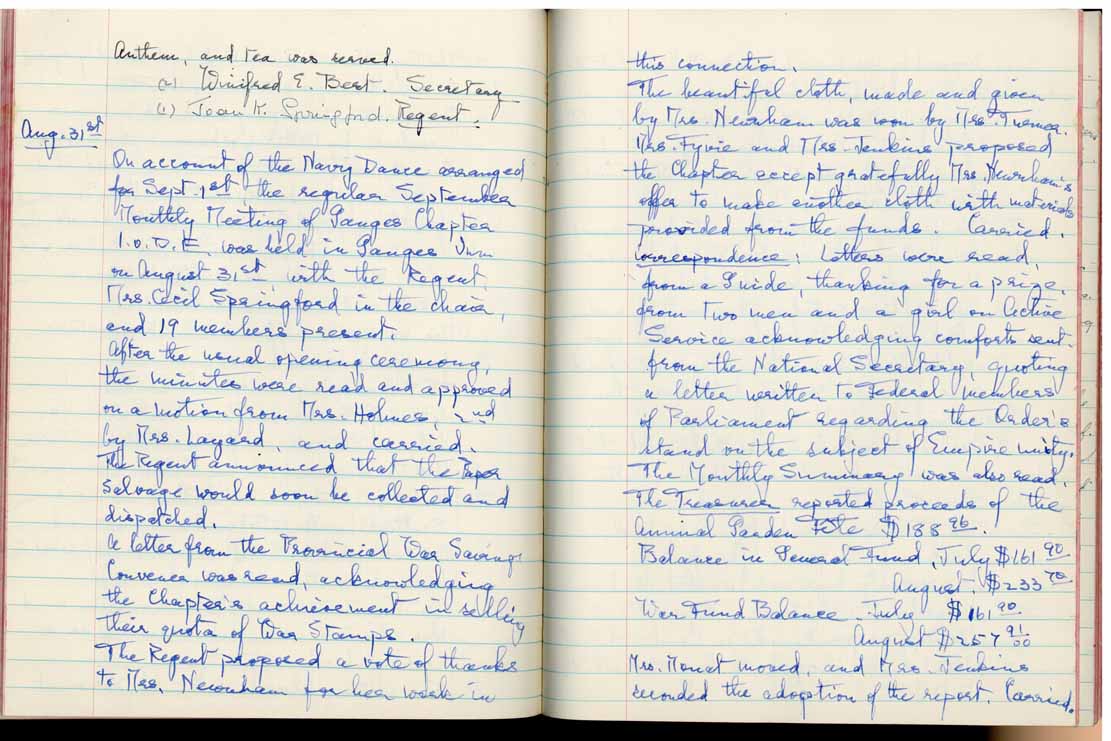 Anthem, and tea was served.
(2) Winifred E. Best. Secretary
(1) Joan K. Springford. Regent.
Aug. 31st
On account of the Navy Dance arranged
for Sept. 1st the regular September
Monthly Meeting of Ganges Chapter
I.O.D.E. was held in Ganges Inn
on August 31st with the Regent,
Mrs. Cecil Springford in the chair,
and 19 members present.
After the usual opening ceremony,
the minutes were read and approved
on a motion from Mrs. Holmes, 2nd
by Mrs. Layard, and carried.
The Regent announced that the Paper
Salvage would soon be collected and
dispatched.
A letter from the Provincial War Savings
Convener was read, acknowledging
the Chapter's achievement in selling
their quota of War Stamps.
The Regent proposed a vote of thanks
to Mrs. Newnham for her work in
this connection.
The beautiful cloth, made and given
by Mrs. Newnham was won by Mrs. Turner.
Mrs. Fyvie and Mrs. Jenkins proposed
the Chapter accept gratefully Mrs. Newnham's
offer to make another cloth with materials
provided from the funds. Carried.
Correspondence: Letters were read,
from a Guide, thanking for a prize,
from two men and a girl on Active
Service acknowledging comforts sent.
from the National Secretary, quoting
a letter written to Federal members
of Parliament regarding the Order's
stand on the subject of Empire unity.
The Monthly Summary was also read.
The Treasurer reported proceeds of the
Annual Garden Fete $188 96.
Balance in General Fund, July $161 90
August. $233 70
War Fund Balance. July $161 90.
August $257 91
Mrs. Mouat moved, and Mrs. Jenkins
seconded the adoption of the report. Carried.